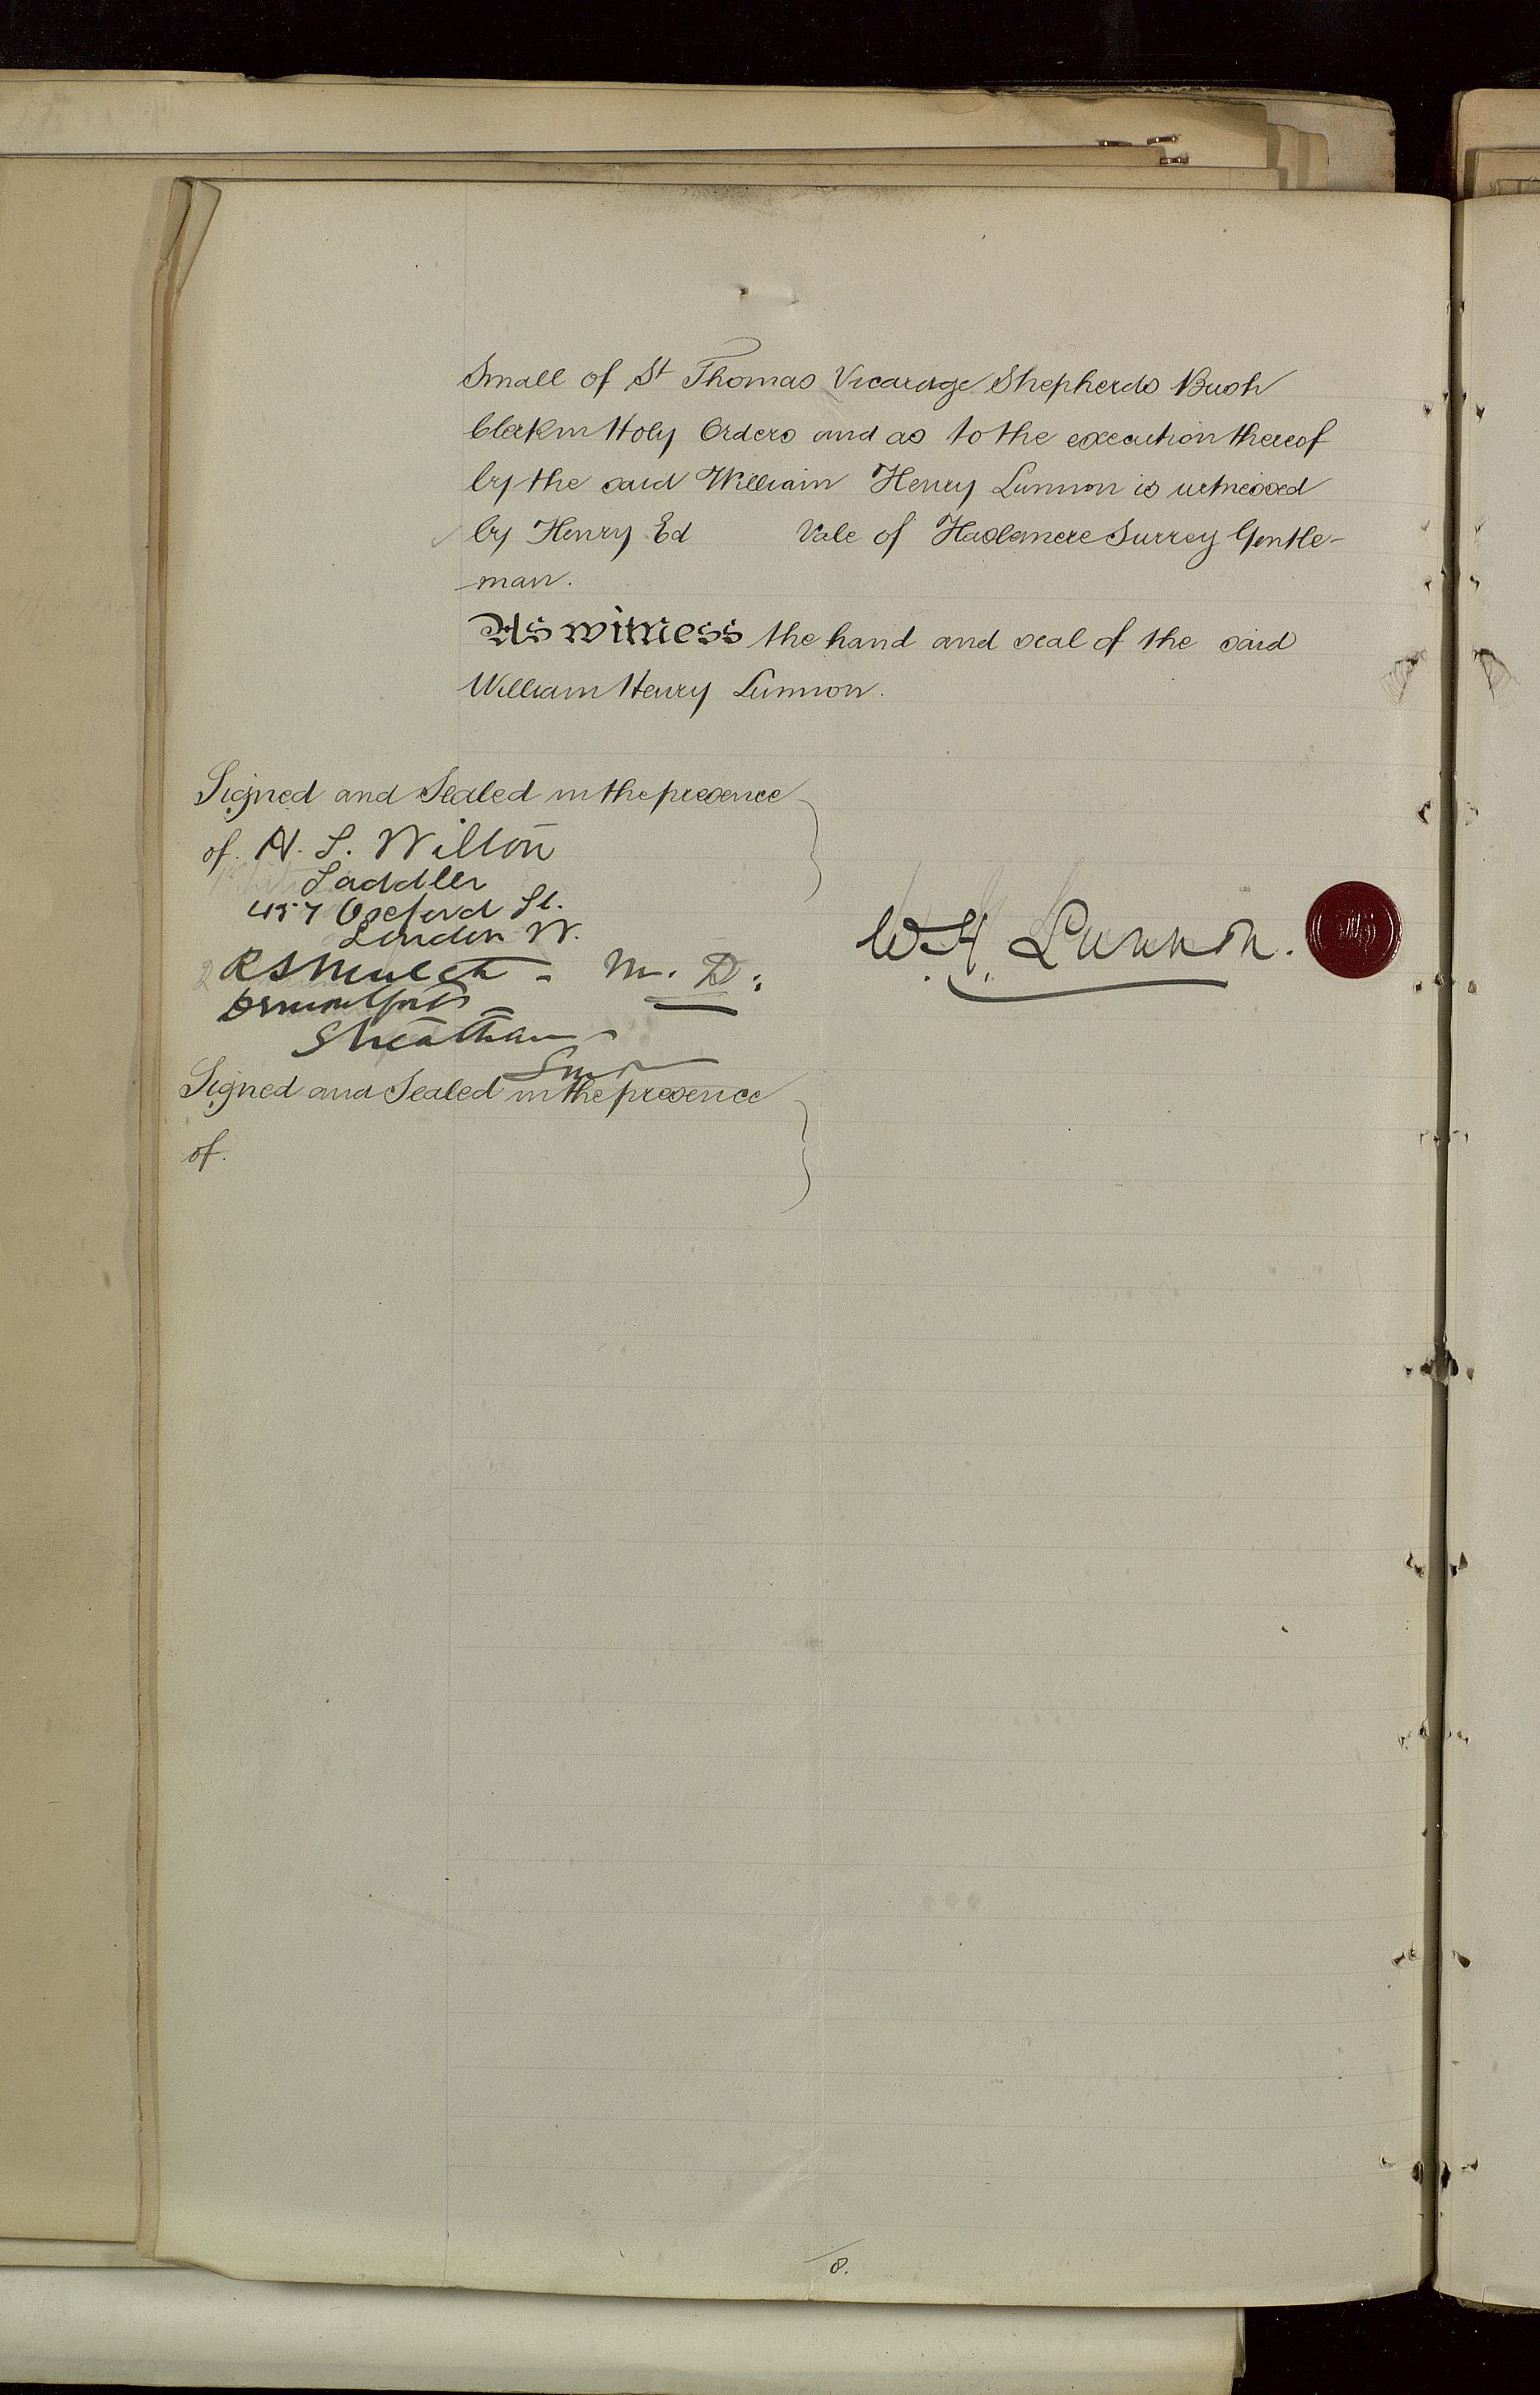 Small of St Thomas Vicarage Shepherds Bush
Clerk in Holy Orders and as to the execution thereof
by the said William Henry Lunnon is witnessed
by Henry Ed Vale of Haslemere Surrey Gentle-
man.
As witness the hand and seal of the said
William Henry Lunnon.
Signed and Sealed in the presence
of. H. S. Wilton
Saddler
457 Oxford St.
London W.
W. H. Lunnon.
M. D.
Signed and Sealed in the presence
of.
8.